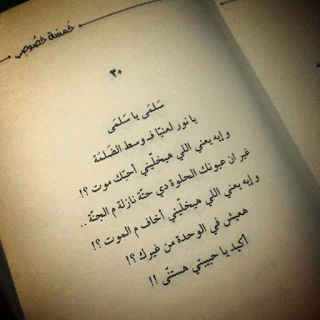 خمسة خصوصي
٣٠
سَلمَى يا سَلمَى
يا نور لعنيّا ف وسط الضَلمَة
وإيه يعني اللي هيخلّيني أحبّك موت ؟!
غير ان عيونك الحلوة دي حتّة نازلة م الجنّة ..
وإيه يعني اللي هيخلّيني أخاف م الموت ؟!
هعيش في الوحدة من غيرك ؟!
أكيد يا حبيبتي هستنّى !!